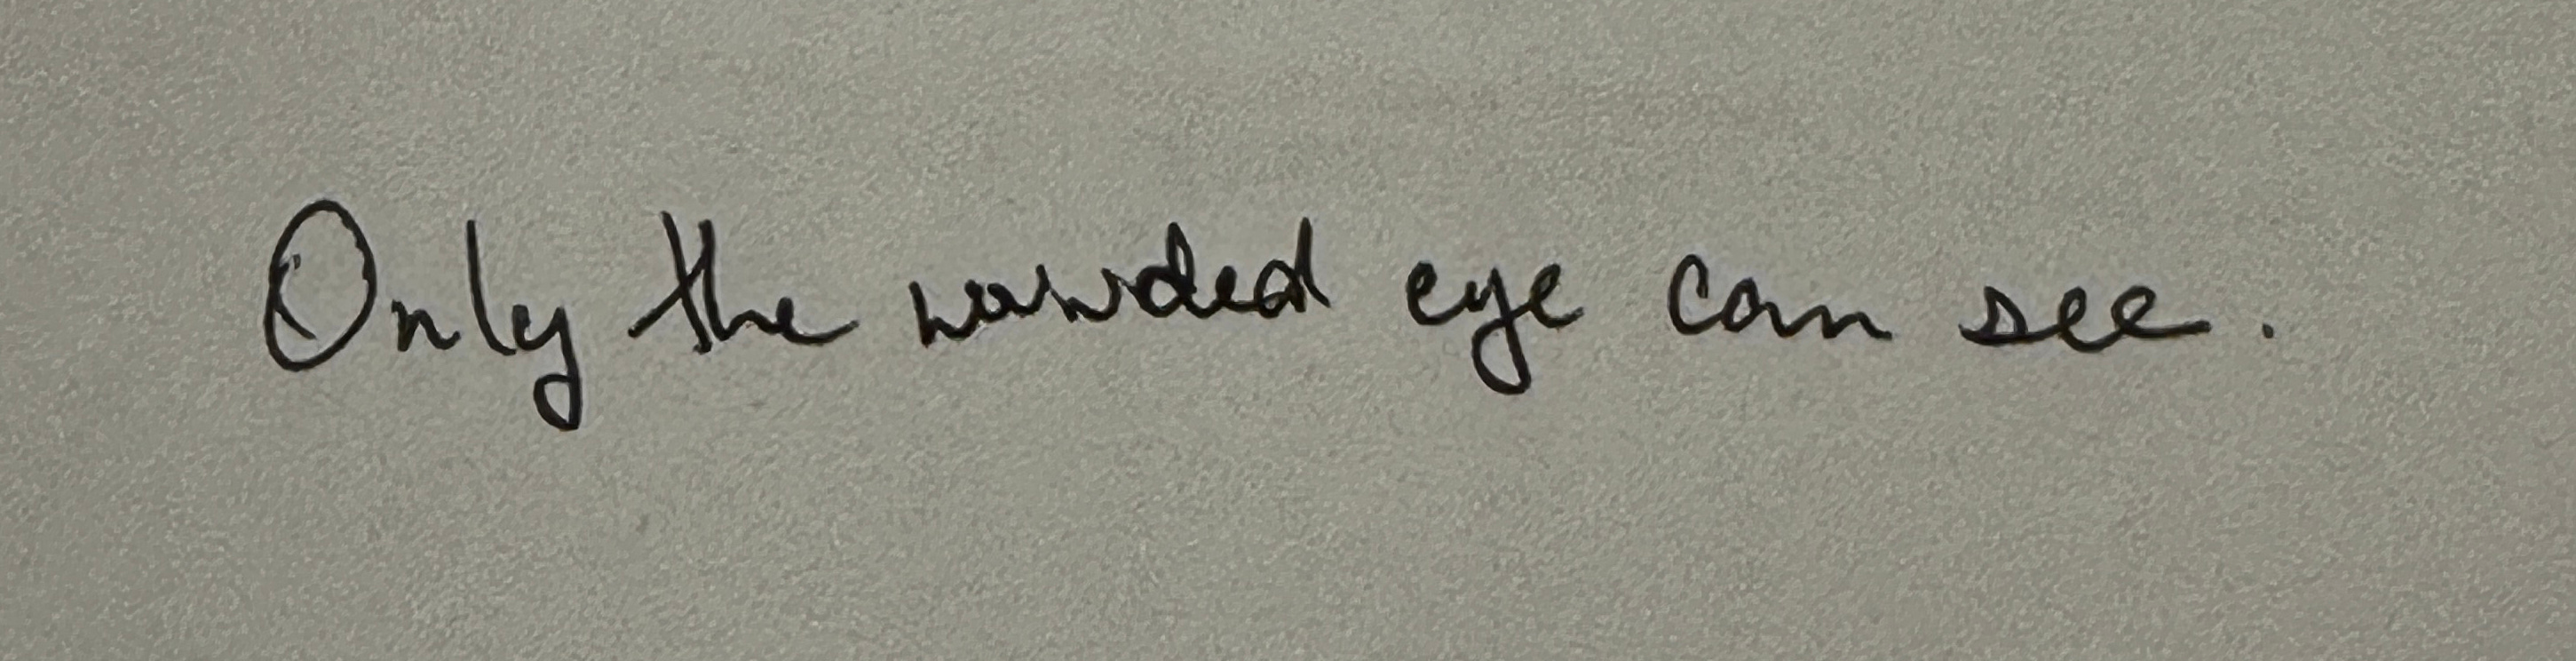 Only the wounded eye can see.